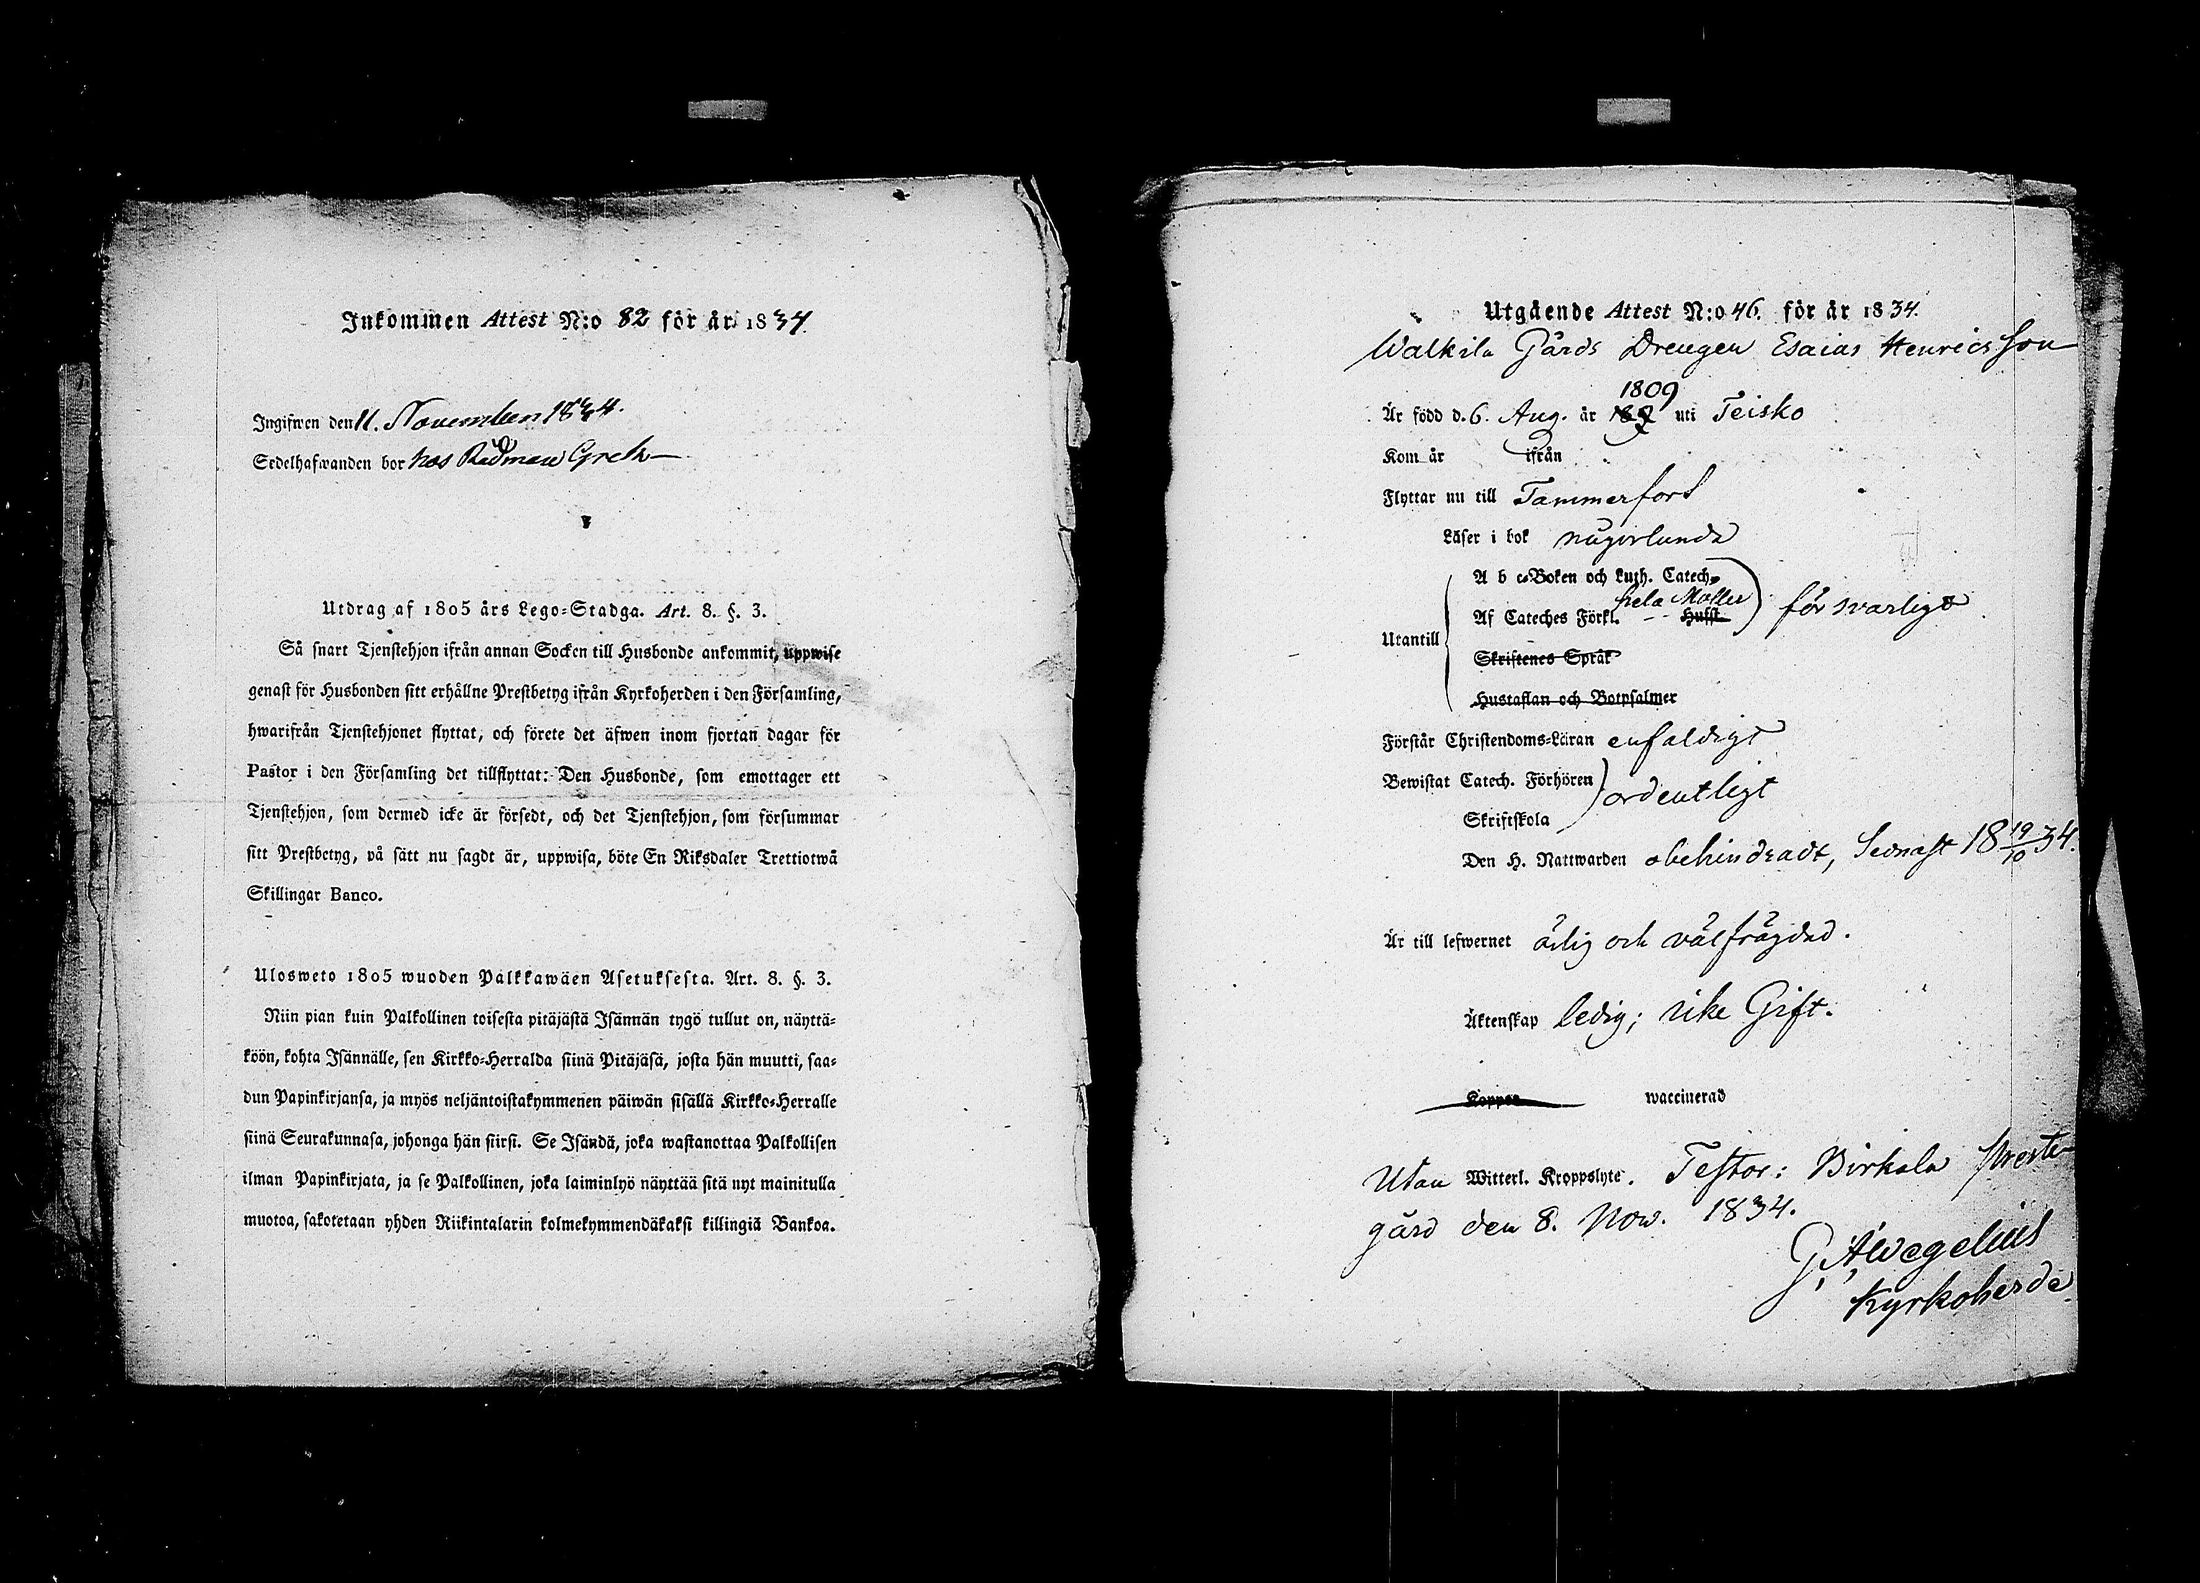 Inkommen Attest N:o 82 för år 1834
Ingifwen den 11. November 1834.
Sedelhafwanden bor hos Rådman Greth
Utdrag af 1805 års Lego-Stadga. Art. 8. §. 3.
Så snart Tjenstehjon ifrån annan Socken till Husbonde ankommit, uppwise
genast för Husbonden sitt erhållne Prestbetyg ifrån Kyrkoherden i den Församling,
hwarifrån Tjenstehjonet flyttat, och förete det äfwen inom fjortan dagar för
Pastor i den Församling det tillflyttat: Den Husbonde, som emottager ett
Tjenstehjon, som dermed icke är försedt, och det Tjenstehjon, som försummar
sitt Prestbetyg, på sätt nu sagdt är, uppwisa, böte En Riksdaler Trettiotwå
Skillingar Banco.
Ulosweto 1805 wuoden Palkkawäen Asetuksesta. Art. 8. §. 3.
Niin pian kuin Palkollinen toisesta pitäjästä Isännän tygö tullut on, näyttä-
köön, kohta Isännälle, sen Kirkko-Herralda siinä Pitäjäsä, josta hän muutti, saa-
dun Papinkirjansa, ja myös neljäntoistakymmenen päiwän sisällä Kirkko-Herralle
siinä Seurakunnasa, johonga hän siirsi. Se Isändä, joka wastanottaa Palkollisen
ilman Papinkirjata, ja se Palkollinen, joka laiminlyö näyttää sitä nyt mainitulla
muotoa, sakotetaan yhden Riikintalarin kolmekymmendäkaksi killingiä Bankoa.
Utgående Attest N:o 46. för år 1834.
Walkila Gårds Drengen Esaias Henricsson
1809
Är född d. 6. Aug. år uti Teisko
Kom år ifrån
Flyttar nu till Tammerfors
Läser i bok någorlunda
A b c-Boken och Luth. Catech.
hela Möller
Af Cateches Förkl. Husst. försvarligt
Utantill
Skriftenes Språk
Hustaflan och Botpsalmer
Förstår Christendoms-Läran enfaldigt
Bewistat Catech. Förhören ordentligt
Skriftskola
Den H. Nattwarden obehindradt, Sednast 18 19/10 34.
Är till lefwernet ärlig och välfrägdad.
Äktenskap ledig; icke Gift.
Koppor waccinerad
Utan Witterl. Kroppslyte. Testor: Birkala Preste-
gård den 8. Nov. 1834.
G. A. Wegelius
Kyrkoherde